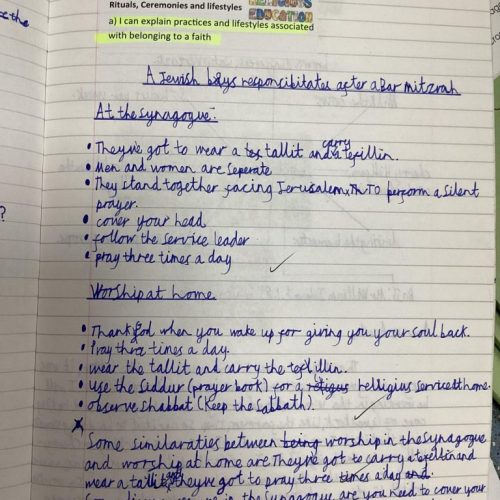 x the
?
Rituals, Ceremonies and lifestyles
RELIGIOUS
EDUCATION
a) I can explain practices and lifestyles associated
with belonging to a faith
A Jewish boys responcibitates after a Bar mitzvah
At the synagogue:
• They've got to wear a tallit and carry a tefillin.
• Men and women are seperate
• They stand together facing Jerusalem, TO perform a silent
prayer.
• cover your head
• follow the service leader
• pray three times a day
Worship at home
• Thank God when you wake up for giving you your soul back.
• Pray three times a day.
• wear the tallit and carry the tefillin.
• use the Siddur (prayer book) for a relligius service at home.
• observe shabbat (Keep the Sabbath).
Some similaraties between worship in the synagogue
and worship at home are They've got to carry a tefillin and
wear a tallit, and they've got to pray three times a day
in the synagogue are you need to cover your